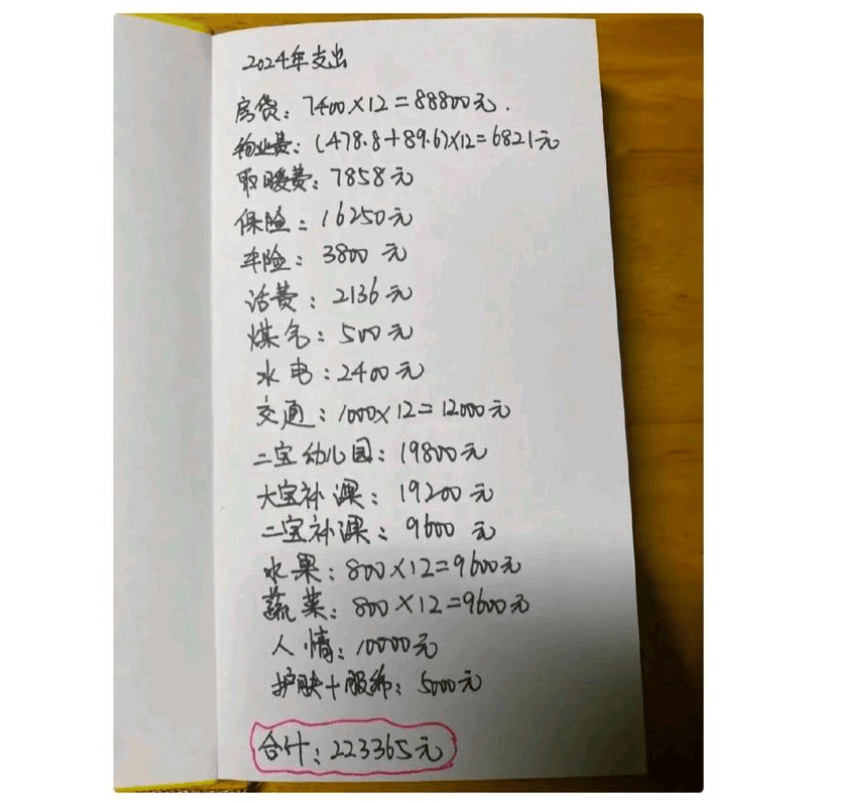 2024年支出
房贷：7400×12=88800元.
物业费：(478.8+89.6)×12=6821元
取暖费：7858元
保险：16250元
车险：3800元
话费：2136元
煤气：500元
水电：2400元
交通：1000×12=12000元
二宝幼儿园：19800元
大宝补课：19200元
二宝补课：9600元
水果：800×12=9600元
蔬菜：800×12=9600元
人情：10000元
护肤+服饰：5000元
合计：223365元